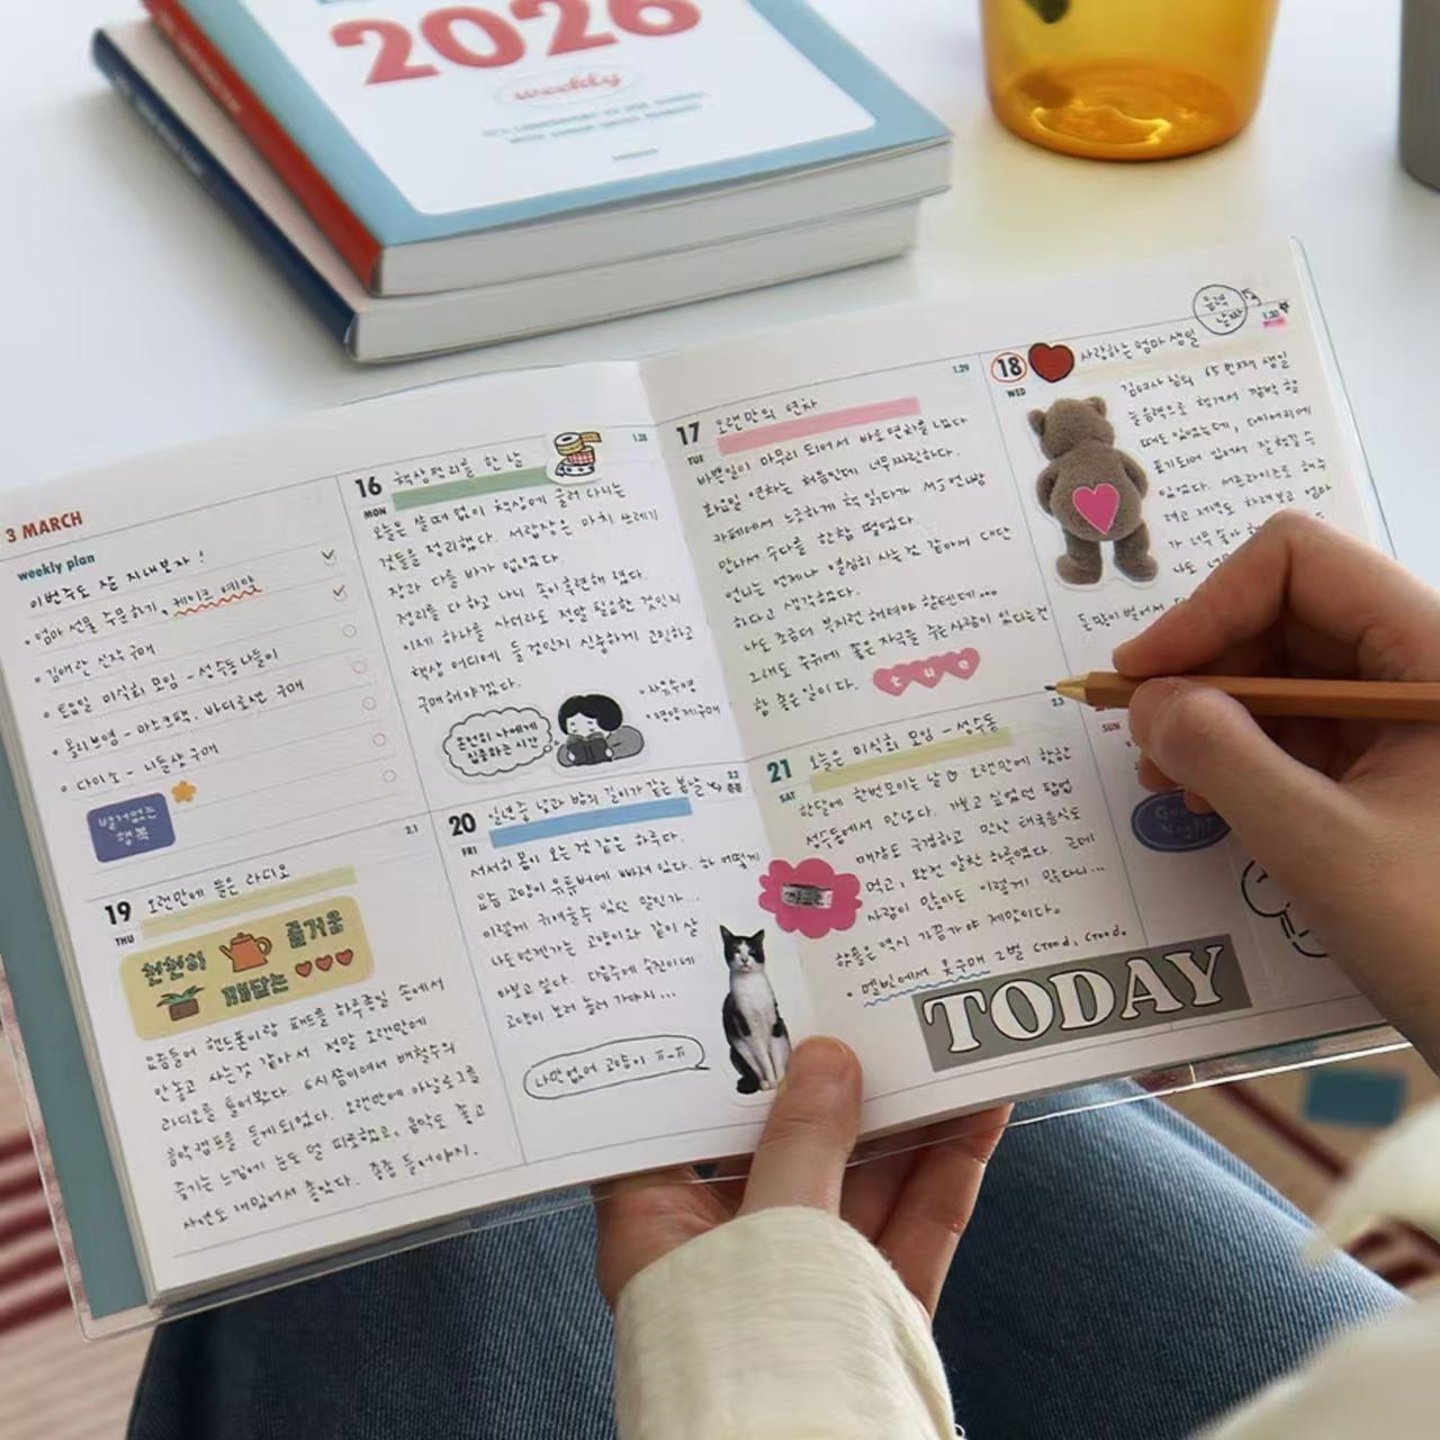 2026
weekly
3 MARCH
weekly plan
이번주도 잘 지내보자!
• 엄마 선물 주문하기, 케이크 예약
• 김애란 신작 구매
• 토요일 미식회 모임 - 성수동 나들이
• 올리브영 - 마스크팩, 바디로션 구매
• 다이소 - 니들샷 구매
별거없는
행복
16
MON
1.28
책상정리를 한 날
오늘은 쓸데없이 책상에 굴러 다니는
것들을 정리했다. 서랍장은 마치 쓰레기
장과 다를 바가 없었다.
정리를 다 하고 나니 속이 후련해 졌다.
이제 하나를 사더라도 정말 필요한 것인지
책상 어디에 둘 것인지 신중하게 고민하고
구매해야겠다.
온전히 나에게
집중하는 시간
• 자유수영
• 영양제구매
17
TUE
1.29
오랜만의 연차
바쁜일이 마무리 되어서 바로 연차를 냈다
화요일 연차는 처음인데 너무짜릿하다.
카페에서 느긋하게 책 읽다가 MJ언니랑
만나서 수다를 한참 떨었다
언니는 언제나 열심히 사는것 같아서 대단
하다고 생각했다.
나도 조금더 부지런 해져야 할텐데...
그래도 주위에 좋은 자극을 주는사람이 있다는건
참 좋은일이다.
t u e
18
WED
음력
날짜
1.30
사랑하는 엄마 생일
김여사님의 65번째 생일
늘음력으로 챙겨서 깜박 할
때도 있었는데, 다이어리에
표기되어 있어서 잘챙길수
있었다. 서프라이즈로 해주
려고 저녁도 하려보고 엄마
가 너무 좋아
나도 너
돈많이 벌어서
19
THU
2.1
오랜만에 들은 라디오
천천히
즐거움
깨닫는
요즘들어 핸드폰이랑 패드를 하루종일 손에서
안놓고 사는것 같아서 정말 오랜만에
라디오를 틀어봤다. 6시쯤이여서 배철수의
음악캠프를 듣게되었다. 오랜만에 아날로그를
즐기는 느낌에 눈도 덜 피로했고, 음악도 좋고
사연도 재밌어서 좋았다. 종종 들어야지.
20
FRI
2.2
춘분
일년중 낮과 밤의 길이가 같은 봄날
서서히 봄이 오는것 같은 하루다.
요즘 고양이 유튜버에 빠져 있다. 하 어떻게
이렇게 귀여울수 있단 말인가...
나도언젠가는 고양이와 같이 살
아보고 싶다. 다음주에 수진이네
고양이 보러 놀러 가야지...
나만 없어 고양이 ㅠ-ㅠ
21
SAT
2.3
오늘은 미식회 모임 - 성수동
한달에 한번모이는 날 오랜만에 핫한
성수동에서 만났다. 가보고 싶었던 팝업
매장도 구경하고 맛난 태국음식도
먹고, 완전 알찬 하루였다. 근데
사람이 많아도 이렇게 많다니...
핫플은 역시 가끔가야 제맛이다.
• 멜빈에서 옷구매 2벌 Good, Good.
TODAY
SUN
Good
Night